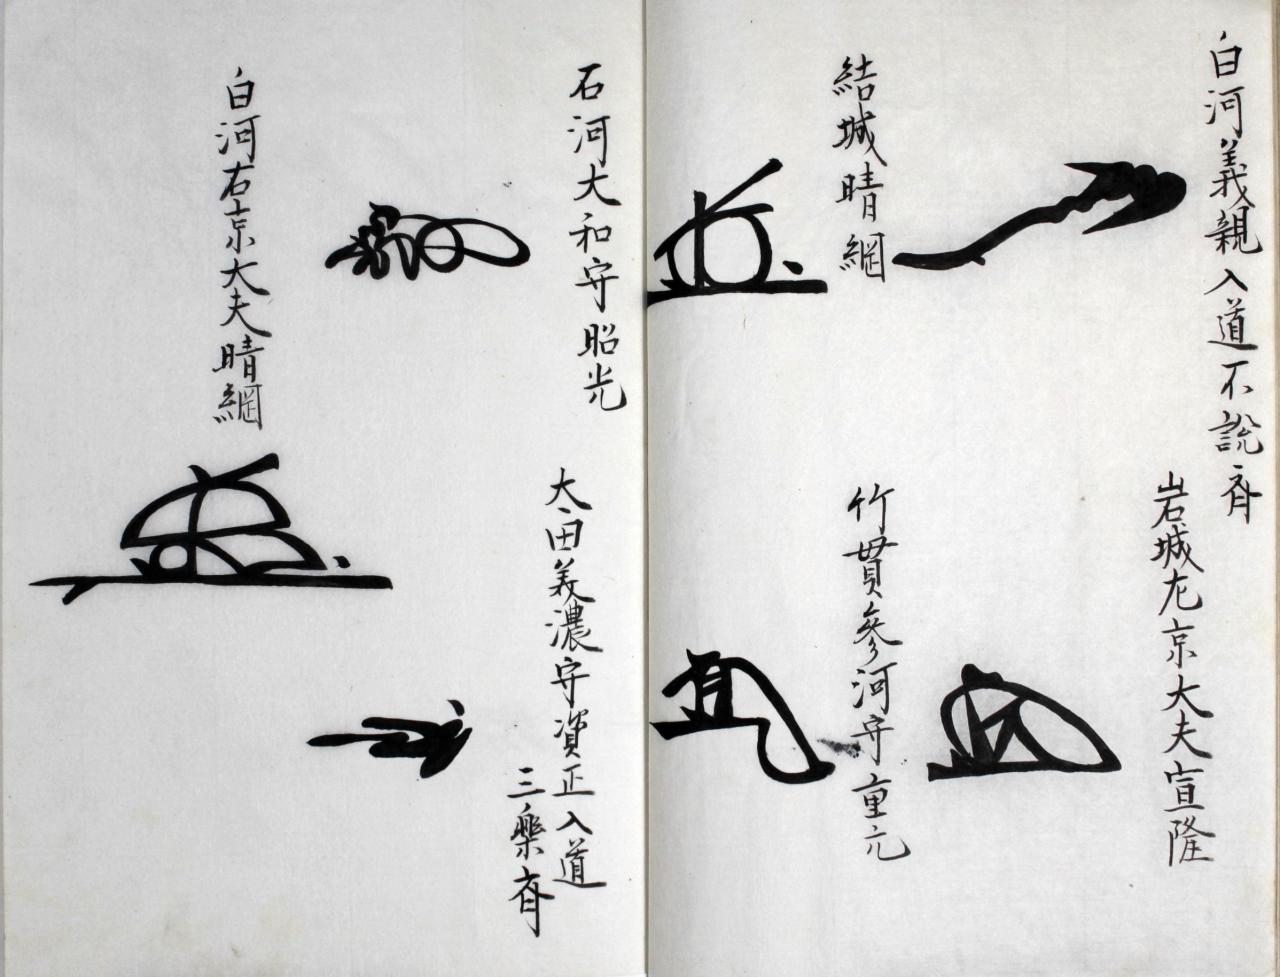 白河義親入道不説斎
岩城左京大夫宣隆
結城晴綱
竹貫参河守重元
石河大和守昭光
太田美濃守資正入道
三楽斎
白河右京大夫晴綱